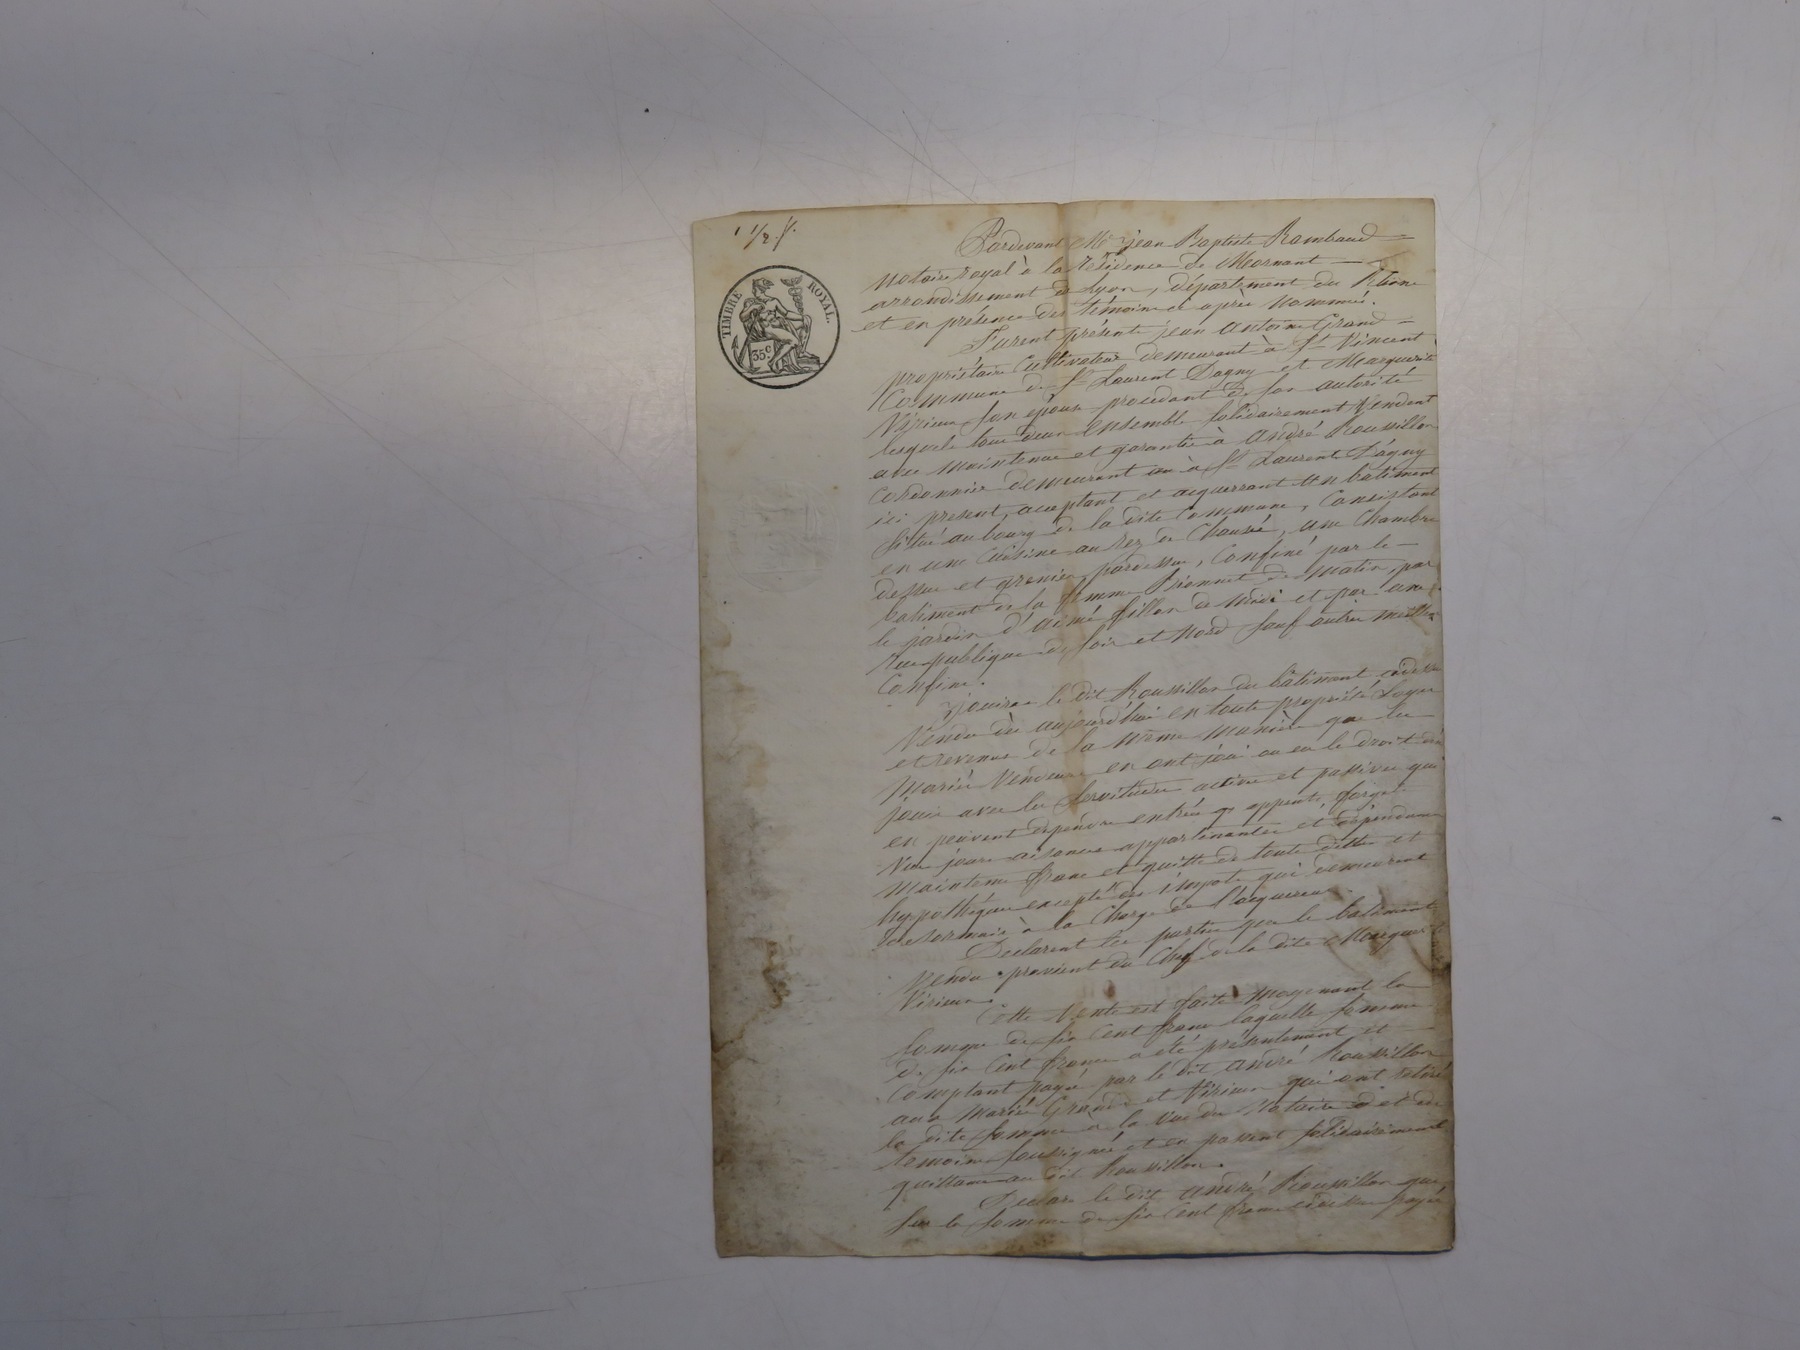 1 1/2 f.
TIMBRE ROYAL
35 c
Pardevant Me jean Baptiste Rambaud
notaire royal à la résidence de Mornant
arrondissement de Lyon, département du Rhône
et en présence des témoins ci après nommés.
Furent présents jean antoine Grand
propriétaire Cultivateur demeurant à St Vincent
Commune de St Laurent Dagny et Marguerite
Virieux son épouse procédant de son autorité
lesquels tous deux ensemble solidairement Vendent
avec maintenue et garantie à andré Roussillon
Cordonnier demeurant à St Laurent Dagny
ici present, acceptant et acquerrant Un batiment
situé au bourg de la dite Commune, Consistant
en une Cuisine au rez de Chaussé, une Chambre
dessus et grenier pardessus, Confiné par le
batiment de la femme de matin, par
le jardin d'aimé fillon de midi et par une
rue publique de soir et nord sauf autres meilleurs
Confins.
Jouira le dit Roussillon du bâtiment cidessus
Vendu dès aujourd'hui en toute propriété
et revenus de la même manière que les
Mariés Vendeurs en ont joui ou eu le droit d'en
jouir avec les servitudes actives et passives qui
en peuvent dépendre entrées
Vues jours aisances appartenantes et dépendances
Maintenu franc et quitte de toute dettes et
hypothéques excepté des impots qui demeurent
desormais à la Charge de l'acquereur.
Declarent les parties que le batiment
Vendu provient du Chef de la dite Marguerite
Virieux.
Cette Vente est faite moyenant la
somme de six Cent francs laquelle somme
de six Cent francs a été présentement et
Comptant payée par le dit andré Roussillon
aux mariés Grand et Virieux qui ont retiré
la dite somme à la vue du Notaire et des
temoins soussignés et en passent solidairement
quittance au dit Roussillon.
Declare le dit andré Roussillon que
sur la somme de six Cent francs cidessus payée